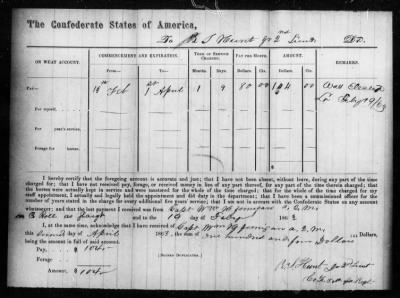 The Confederate States of America,
To J S Hunt Jr 2nd Lieut Dr.
ON WHAT ACCOUNT.
COMMENCEMENT AND EXPIRATION.
TERM OF SERVICE CHARGED.
PAY PER MONTH.
AMOUNT.
REMARKS.
From— To— Months. Days. Dols. Cts. Dols. Cts.
Pay— 19 Feb 1st April 1 9 80 00 104 00
For myself,
For year's service,
Forage for horses,
$
I hereby certify that the foregoing account is accurate and just; that I have not been absent, without leave, during any part of the time
charged for; that I have not received pay, forage, or received money in lieu of any part thereof, for any part of the time therein charged; that
the horses were actually kept in service and were mustered for the whole of the time charged; that for the whole of the time charged for my
staff appointment, I actually and legally held the appointment and did duty in the department; that I have been a commissioned officer for the
number of years stated in the charge for every additional five years' service; that I am not in arrears with the Confederate States on any account
whatsoever; and that the last payment I received was from Capt Wm W Jernigan A. Q. M.
and to the 19 day of Feby 186
I, at the same time, acknowledge that I have received of Capt Wm W Jernigan A. Q. M.
this day of April 1863, the sum of one hundred and four Dollars Dollars,
being the amount in full of said account.
Pay, $ 104
Forage
Amount, $ 104
[SIGNED DUPLICATES.]
Hunt Jr 2nd Lieut
Regt